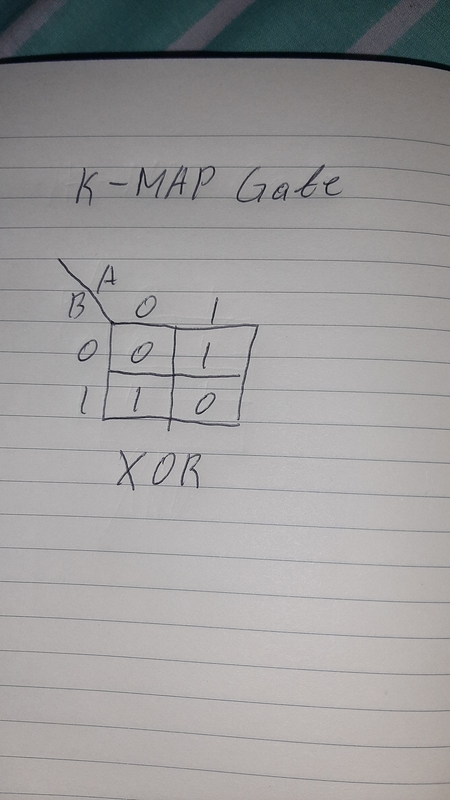 K-MAP Gate
A
B 0 1
0 0 1
1 1 0
XOR